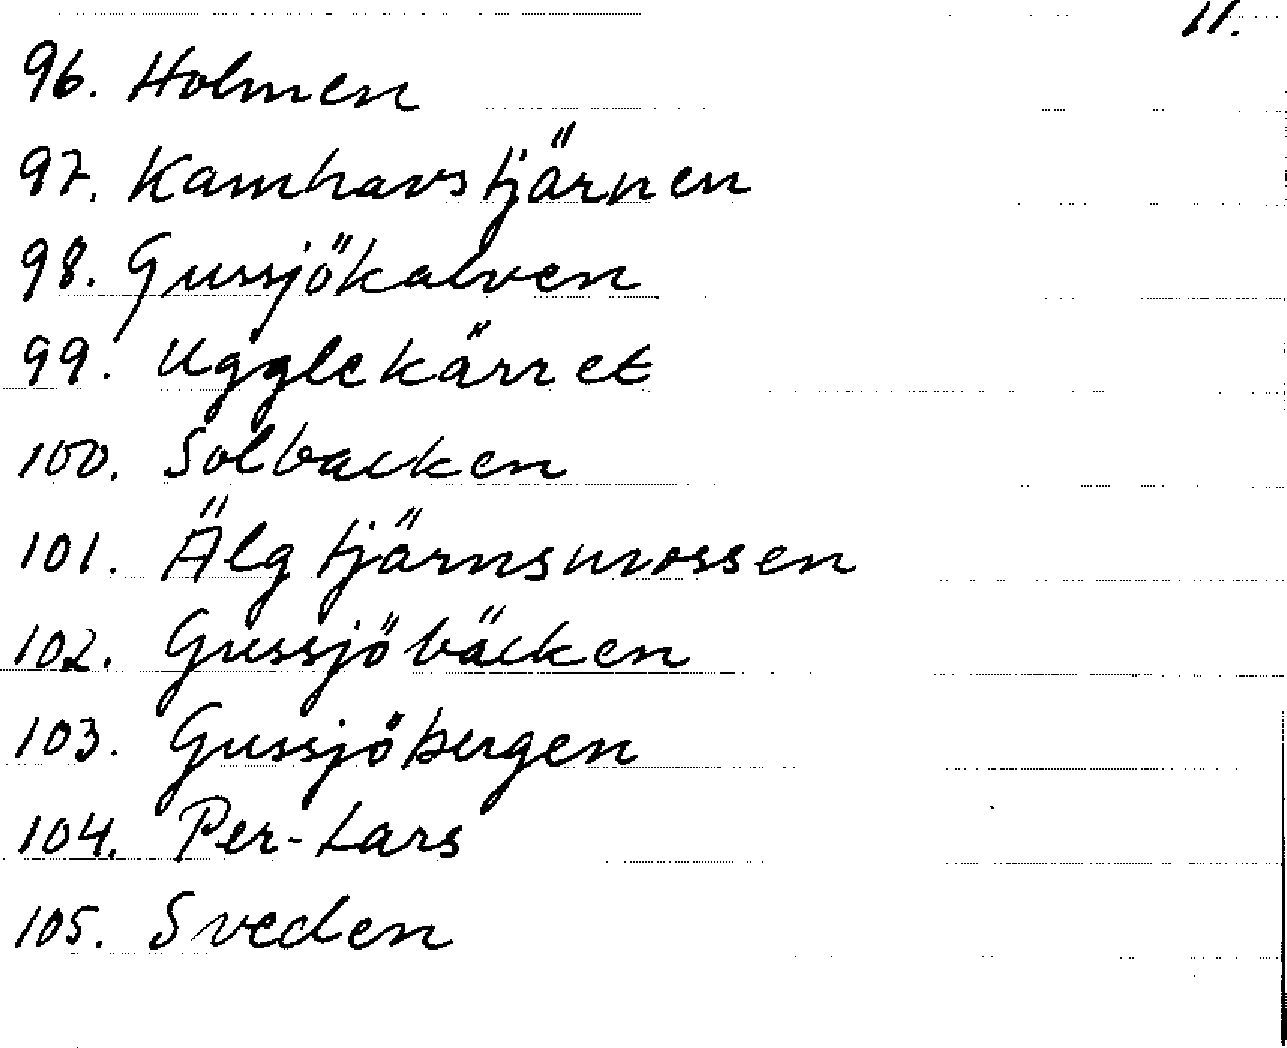 11.
96. Holmen
97. Kamhavstjärnen
98. Gussjökalven
99. Ugglekärret
100. Solbacken
101. Älgtjärnsmossen
102. Gussjöbäcken
103. Gussjöbergen
104. Per-Lars
105. Sveden